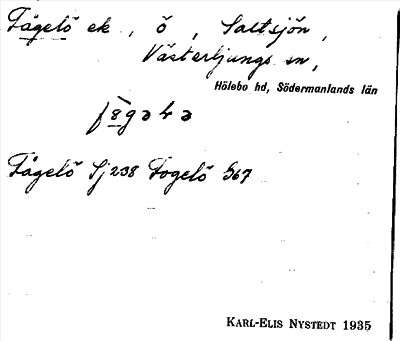 Fågelö ek, ö, Saltsjön,
Västerljungs sn,
Hölebo hd, Södermanlands län
Fågelö Sj 238 Fogelö G67
KARL-ELIS NYSTEDT 1935